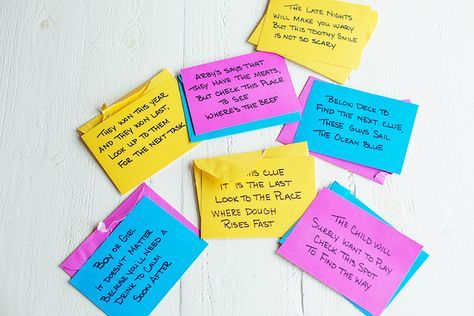 The Late Nights
Will make you wary
But this toothy smile
is not so scary
Arby's says that
they have the meats,
But check this place
to see
where's the beef
Below deck to
find the next clue,
these guys sail
the ocean blue
They won this year
and they won last,
Look up to them
for the next task
This clue
it is the last
look to the place
where dough
rises fast
Boy or Girl
it doesn't matter
because you'll need a
drink to calm
soon after
The child will
surely want to play
check this spot
to find the way